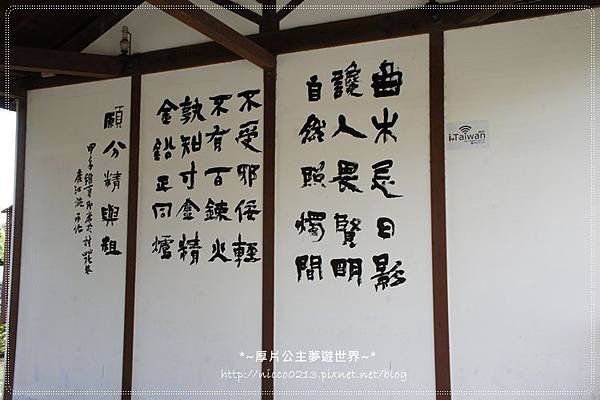 曲木忌日影
讒人畏賢明
自然照燭間
不受邪佞輕
不有百鍊火
孰知寸金精
金鉛正同爐
願分精與粗
iTaiwan
*~厚片公主夢遊世界~*
http://nicco0213.pixnet.net/blog